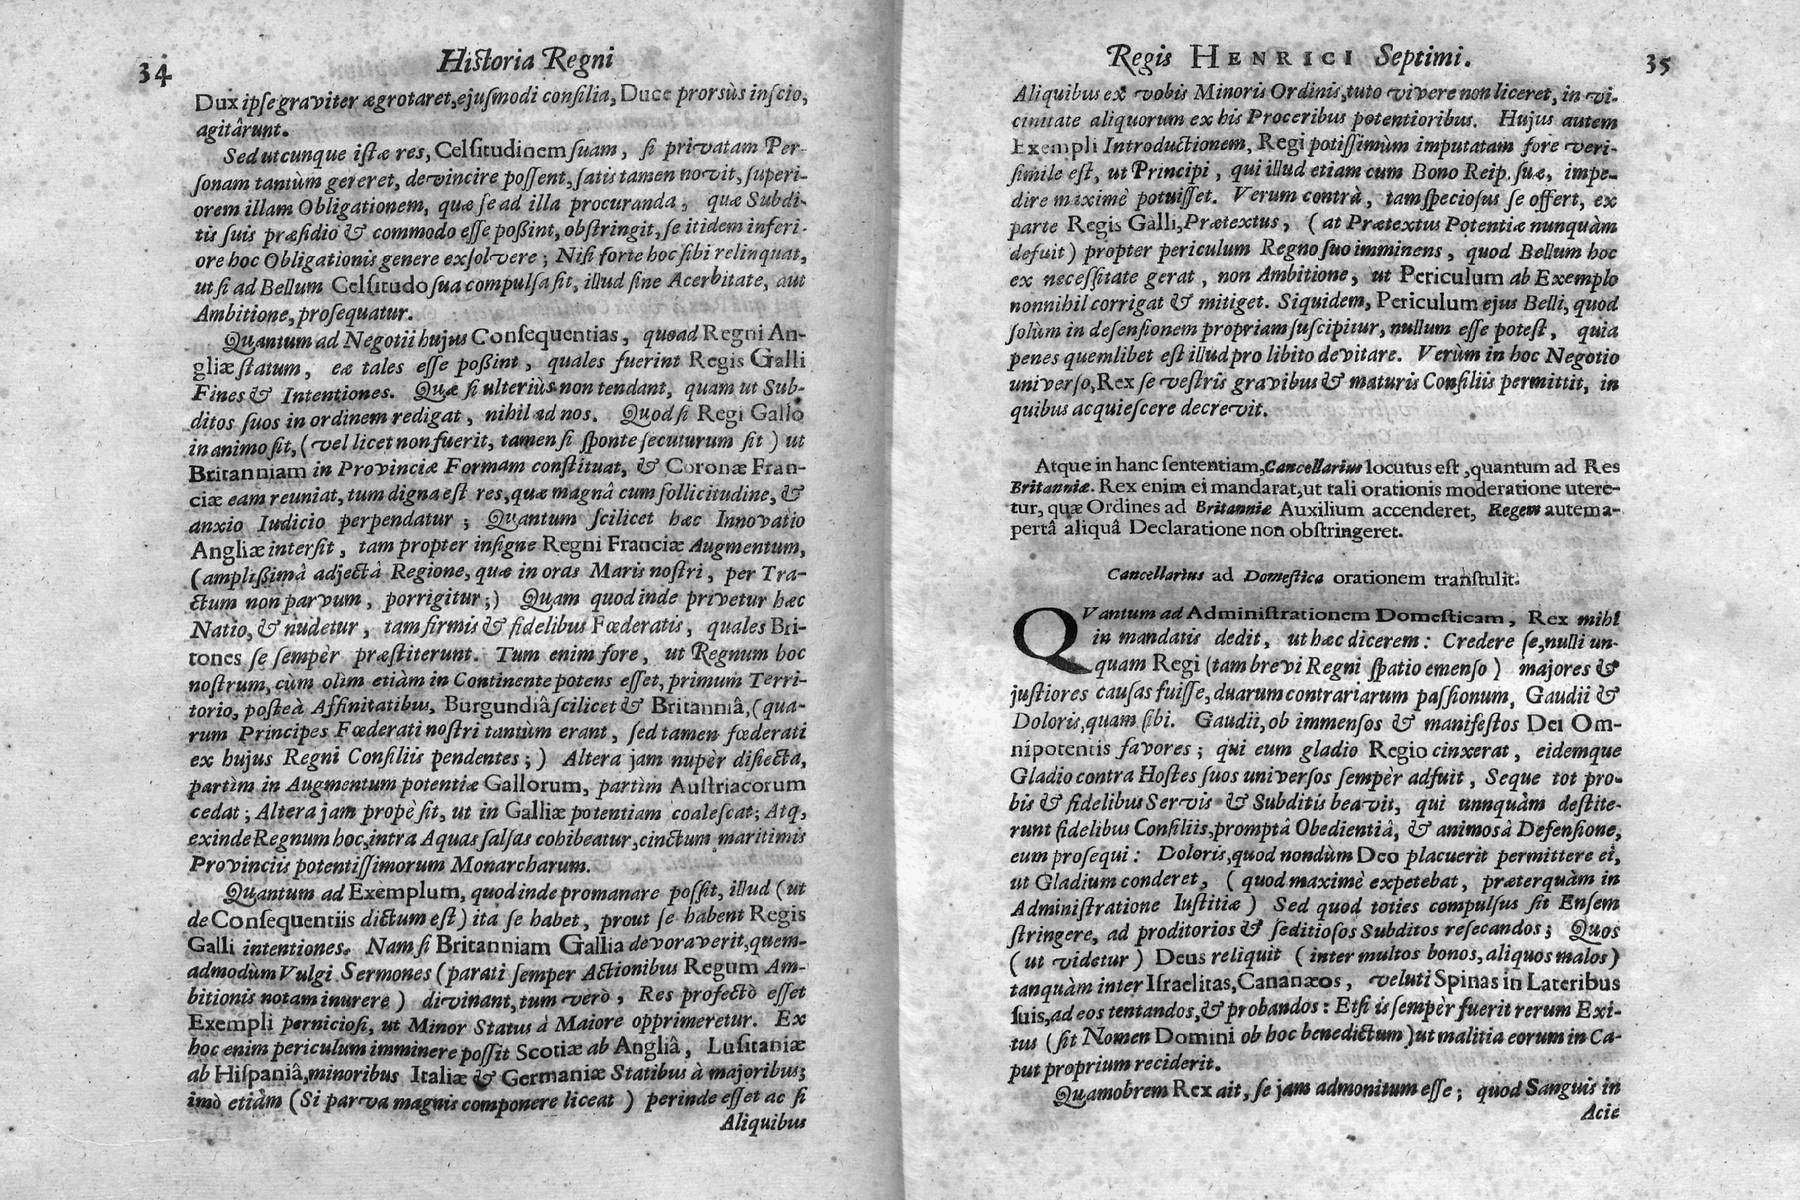 34
Historia Regni
Dux ipse graviter ægrotaret, ejusmodi consilia, Duce prorsùs inscio,
agitârunt.
Sed utcunque istæ res, Celsitudinem suam, si privatam Per-
sonam tantùm gereret, devincire possent, satis tamen novit, superi-
orem illam Obligationem, quæ se ad illa procuranda, quæ Subdi-
tis suis præsidio & commodo esse possint, obstringit, se itidem inferi-
ore hoc Obligationis genere exsolvere; Nisi forte hoc sibi relinquat,
ut si ad Bellum Celsitudo sua compulsa sit, illud sine Acerbitate, aut
Ambitione, prosequatur.
Quantum ad Negotii hujus Consequentias, quoad Regni An-
gliæ statum, eæ tales esse possint, quales fuerint Regis Galli
Fines & Intentiones. Quæ si ulteriùs non tendant, quam ut Sub-
ditos suos in ordinem redigat, nihil ad nos. Quod si Regi Gallo
in animo sit, (vel licet non fuerit, tamen si sponte secuturum sit) ut
Britanniam in Provinciæ Formam constituat, & Coronæ Fran-
ciæ eam reuniat, tum digna est res, quæ magnâ cum sollicitudine, &
anxio Iudicio perpendatur; Quantum scilicet hæc Innovatio
Angliæ intersit, tam propter insigne Regni Franciæ Augmentum,
(amplissimâ adjectâ Regione, quæ in oras Maris nostri, per Tra-
ctum non parvum, porrigitur;) Quam quod inde privetur hæc
Natio, & nudetur, tam firmis & fidelibus Fœderatis, quales Bri-
tones se sempèr præstiterunt. Tum enim fore, ut Regnum hoc
nostrum, cùm olìm etiàm in Continente potens esset, primum Terri-
torio, posteà Affinitatibus, Burgundiâ scilicet & Britanniâ, (qua-
rum Principes Fœderati nostri tantùm erant, sed tamen fœderati
ex hujus Regni Consiliis pendentes;) Altera jam nupèr disiecta,
partìm in Augmentum potentiæ Gallorum, partìm Austriacorum
cedat; Altera jam propè sit, ut in Galliæ potentiam coalescat; Atq,
exinde Regnum hoc, intra Aquas salsas cohibeatur, cinctum maritimis
Provinciis potentissimorum Monarcharum.
Quantum ad Exemplum, quod inde promanare possit, illud (ut
de Consequentiis dictum est) ita se habet, prout se habent Regis
Galli intentiones. Nam si Britanniam Gallia devoraverit, quem-
admodùm Vulgi Sermones (parati semper Actionibus Regum Am-
bitionis notam inurere) divinant, tum verò, Res profectò esset
Exempli perniciosi, ut Minor Status à Maiore opprimeretur. Ex
hoc enim periculum imminere possit Scotiæ ab Angliâ, Lusitaniæ
ab Hispaniâ, minoribus Italiæ & Germaniæ Statibus à majoribus;
imò etiàm (Si parva magnis componere liceat) perinde esset ac si
Aliquibus
Regis HENRICI Septimi.
35
Aliquibus ex vobis Minoris Ordinis, tuto vivere non liceret, in vi-
cinitate aliquorum ex his Proceribus potentioribus. Hujus autem
Exempli Introductionem, Regi potissimùm imputatam fore veri-
simile est, ut Principi, qui illud etiam cum Bono Reip. suæ, impe-
dire maximè potuisset. Verum contrà, tam speciosus se offert, ex
parte Regis Galli, Prætextus, (at Prætextus Potentiæ nunquàm
defuit) propter periculum Regno suo imminens, quod Bellum hoc
ex necessitate gerat, non Ambitione, ut Periculum ab Exemplo
nonnihil corrigat & mitiget. Siquidem, Periculum ejus Belli, quod
solùm in defensionem propriam suscipitur, nullum esse potest, quia
penes quemlibet est illud pro libito devitare. Verùm in hoc Negotio
universo, Rex se vestris gravibus & maturis Consiliis permittit, in
quibus acquiescere decrevit.
Atque in hanc sententiam, Cancellarius locutus est, quantum ad Res
Britanniæ. Rex enim ei mandarat, ut tali orationis moderatione utere-
tur, quæ Ordines ad Britanniæ Auxilium accenderet, Regem autem a-
pertâ aliquâ Declaratione non obstringeret.
Cancellarius ad Domestica orationem transtulit.
QVantum ad Administrationem Domesticam, Rex mihi
in mandatis dedit, ut hæc dicerem: Credere se, nulli un-
quam Regi (tam brevi Regni spatio emenso) majores &
justiores causas fuisse, duarum contrariarum passionum, Gaudii &
Doloris, quam sibi. Gaudii, ob immensos & manifestos Dei Om-
nipotentis favores; qui eum gladio Regio cinxerat, eidemque
Gladio contra Hostes suos universos sempèr adfuit, Seque tot pro-
bis & fidelibus Servis & Subditis beavit, qui unnquàm destite-
runt fidelibus Consiliis, promptâ Obedientiâ, & animosâ Defensione,
eum prosequi: Doloris, quod nondùm Deo placuerit permittere ei,
ut Gladium conderet, (quod maximè expetebat, præterquàm in
Administratione Iustitiæ) Sed quod toties compulsus sit Ensem
stringere, ad proditorios & seditiosos Subditos resecandos; Quos
(ut videtur) Deus reliquit (inter multos bonos, aliquos malos)
tanquàm inter Israelitas, Cananæos, veluti Spinas in Lateribus
suis, ad eos tentandos, & probandos: Etsi is sempèr fuerit rerum Exi-
tus (sit Nomen Domini ob hoc benedictum) ut malitia eorum in Ca-
put proprium reciderit.
Quamobrem Rex ait, se jam admonitum esse; quod Sanguis in
Acie